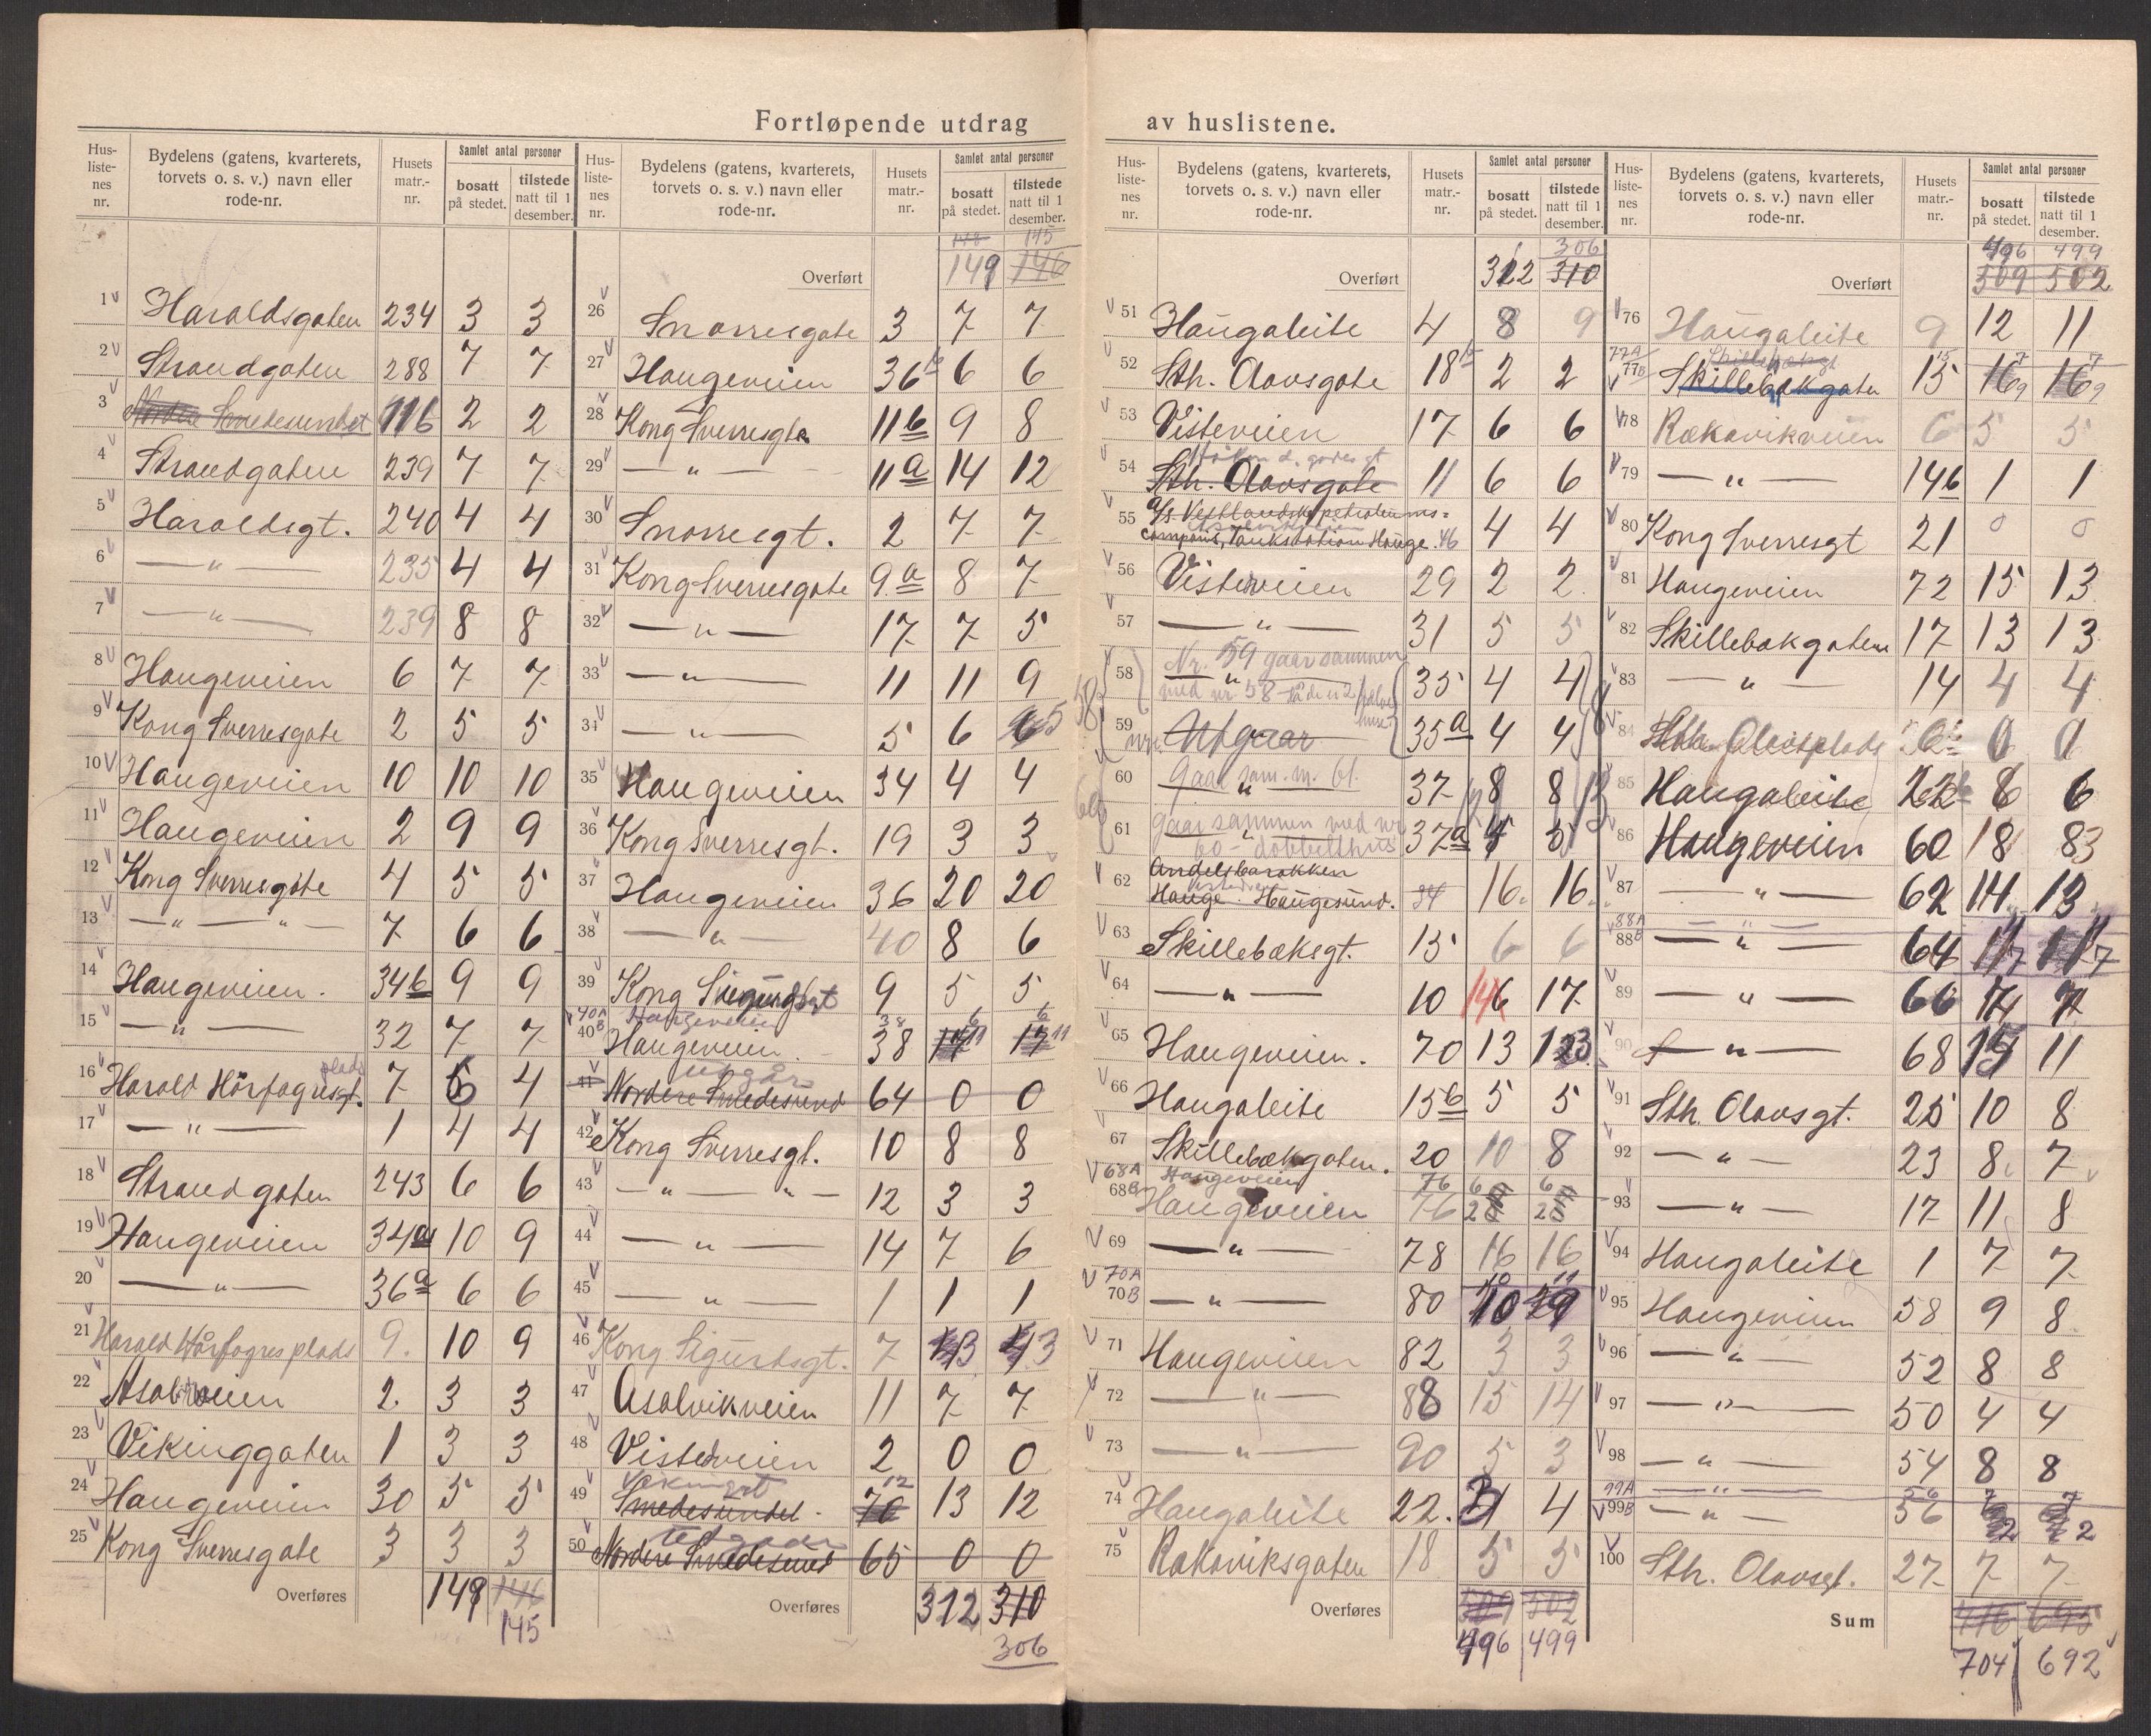 Fortløpende utdrag av huslistene.
Hus-liste-nes nr. | Bydelens (gatens, kvarterets, torvets o. s. v.) navn eller rode-nr. | Husets matr.-nr. | Samlet antal personer | bosatt på stedet. | tilstede natt til 1 desember.
1 Haraldsgaten 234 3 3
2 Strandgaten 288 7 7
3 Nordre Smedesundet 116 2 2
4 Strandgaten 239 7 7
5 Haraldsgt. 240 4 4
6 — " — 235 4 4
7 — " — 239 8 8
8 Haugeveien 6 7 7
9 Kong Sverresgate 2 5 5
10 Haugeveien 10 10 10
11 Haugeveien 2 9 9
12 Kong Sverresgate 4 5 5
13 — " — " — 7 6 6
14 Haugeveien. 34b 9 9
15 — " — 32 7 7
16 Harald Hårfagresgt. plads 7 5 4
17 — " — 1 4 4
18 Strandgaten 243 6 6
19 Haugeveien 34a 10 9
20 — " — 36a 6 6
21 Harald Hårfagres plads 9. 10 9
22 2. 3 3
23 Vikinggaten 1 3 3
24 Haugeveien 30 5 5
25 Kong Sverresgate 3 3 3
Overføres 149 146
145
Hus-liste-nes nr. | Bydelens (gatens, kvarterets, torvets o. s. v.) navn eller rode-nr. | Husets matr.-nr. | Samlet antal personer | bosatt på stedet. | tilstede natt til 1 desember.
145
Overført 149 146
26 Snorresgate 3 7 7
27 Haugeveien 36b 6 6
28 Kong Sverresgt. 11b 9 8
29 — " — 11a 14 12
30 Snorresgt. 2 7 7
31 Kong Sverresgate 9a 8 7
32 — " — 17 7 5
33 — " — 11 11 9
34 — " — 5 6 5
35 Haugeveien 34 4 4
36 Kong Sverresgt. 19 3 3
37 Haugeveien 36 20 20
38 — " — 40 8 6
39 Kong Sigurdsgt 9 5 5
40A Haugeveien 38 6 6
40B Haugeveien 38 11 11
41 Nordre Smedesund utgår 64 0 0
42 Kong Sverresgt. 10 8 8
43 — " — " — 12 3 3
44 — " — 14 7 6
45 — " — 1 1 1
46 Kong Sigurdsgt. 7 3 3
47 Asalvikveien 11 7 7
48 Visteveien 2 0 0
49 Vikinggt 12
Smedesundet. 70 13 12
50 Nordre Smedesund Utgaar 65 0 0
Overføres 312 310
306
Hus-liste-nes nr. | Bydelens (gatens, kvarterets, torvets o. s. v.) navn eller rode-nr. | Husets matr.-nr. | Samlet antal personer | bosatt på stedet. | tilstede natt til 1 desember.
306
Overført 312 310
51 Haugaleite 4 8 9
52 Sth. Olavsgate 18b 2 2
53 Visteveien 17 6 6
54 Håkon d. godes gt
Sth. Olavsgate 11 6 6
55 A/s. Vestlandske petroleums=
compani, Tankstation Hauge. 46 4 4
56 Visteveien 29 2 2
57 — " — 31 5 5
58 Nr. 59 gaar sammen
med nr 58 35 4 4
59 Utgaar 35a 4 4
60 gaar sam. m. 61. 37 8 8
61 gaar sammen med nr
60 - dobbelthus 37a 4 5
62 Andelsbarakken
Hauge. Haugesund. 34 16 16
63 Skillebæksgt. 15 6 6
64 — " — 10 16 17
65 Haugeveien. 70 13 13
66 Haugaleite 15b 5 5
67 Skillebækgaten. 20 10 8
68A Haugeveien 76 6 6
68B Haugeveien 76
69 — " — 78 16 16
70A
70B — " — 80 10 9
71 Haugeveien 82 3 3
72 — " — 88 15 14
73 — " — 90 5 3
74 Haugaleite 22. 4
75 Røkeviksgaten 18 5 5
Overføres 509 502
496 499
Hus-liste-nes nr. | Bydelens (gatens, kvarterets, torvets o. s. v.) navn eller rode-nr. | Husets matr.-nr. | Samlet antal personer | bosatt på stedet. | tilstede natt til 1 desember.
496 499
Overført 509 502
76 Haugaleite 9 12 11
77A Skillebækgt 15 7 7
77B Skillebækgaten 15 9 9
78 Røkevikveien 6 5 5
79 — " — 14b 1 1
80 Kong Sverresgt 21 0 0
81 Haugeveien 72 15 13
82 Skillebækgaten 17 13 13
83 — " — 14 4 4
84 0 0
85 Haugaleite 22 6 6
86 Haugeveien 60 18
87 — " — 62 14 13
88A — " —
88B — " — 64 7 7
89 — " — 66
90 — " — 68 11
91 Sth. Olavsgt. 25 10 8
92 — " — 23 8 7
93 — " — 17 11 8
94 Haugaleite 1 7 7
95 Haugeveien 58 9 8
96 — " — 52 8 8
97 — " — 50 4 4
98 — " — 54 8 8
99A — " — 56 7 7
99B — " — 56 2 2
100 Sth. Olavsgt. 27 7 7
Sum 716 695
704 692